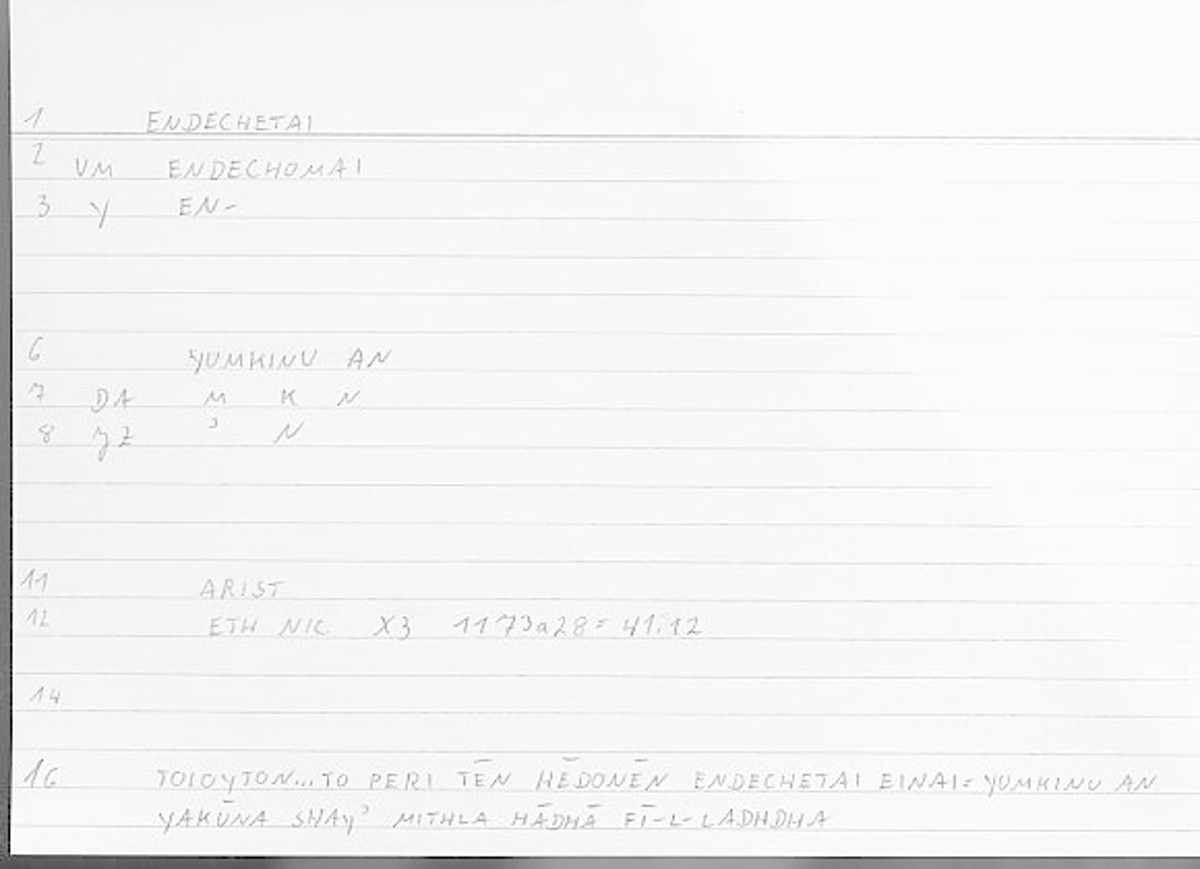 1 ENDECHETAI
2 VM ENDECHOMAI
3 y EN-
6 YUMKINU AN
7 DA M K N
8 ZZ ʾ N
11 ARIST
12 ETH NIC X3 1173a28 = 41.12
14
16 TOIOYTON...TO PERI TĒN HĒDONĒN ENDECHETAI EINAI = YUMKINU AN
YAKŪNA SHAYʾ MITHLA HĀDHĀ FĪ-L-LADHDHA